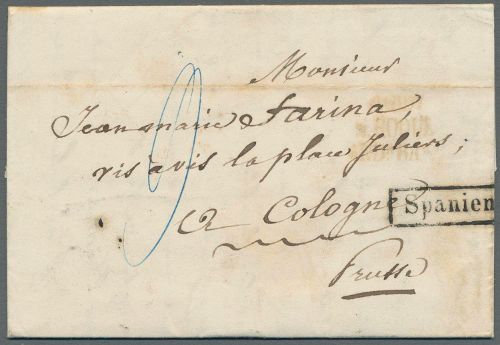 Monsieur
Jean marie Farina
vis à vis la place Juliers;
a Cologne
Spanien
Prusse